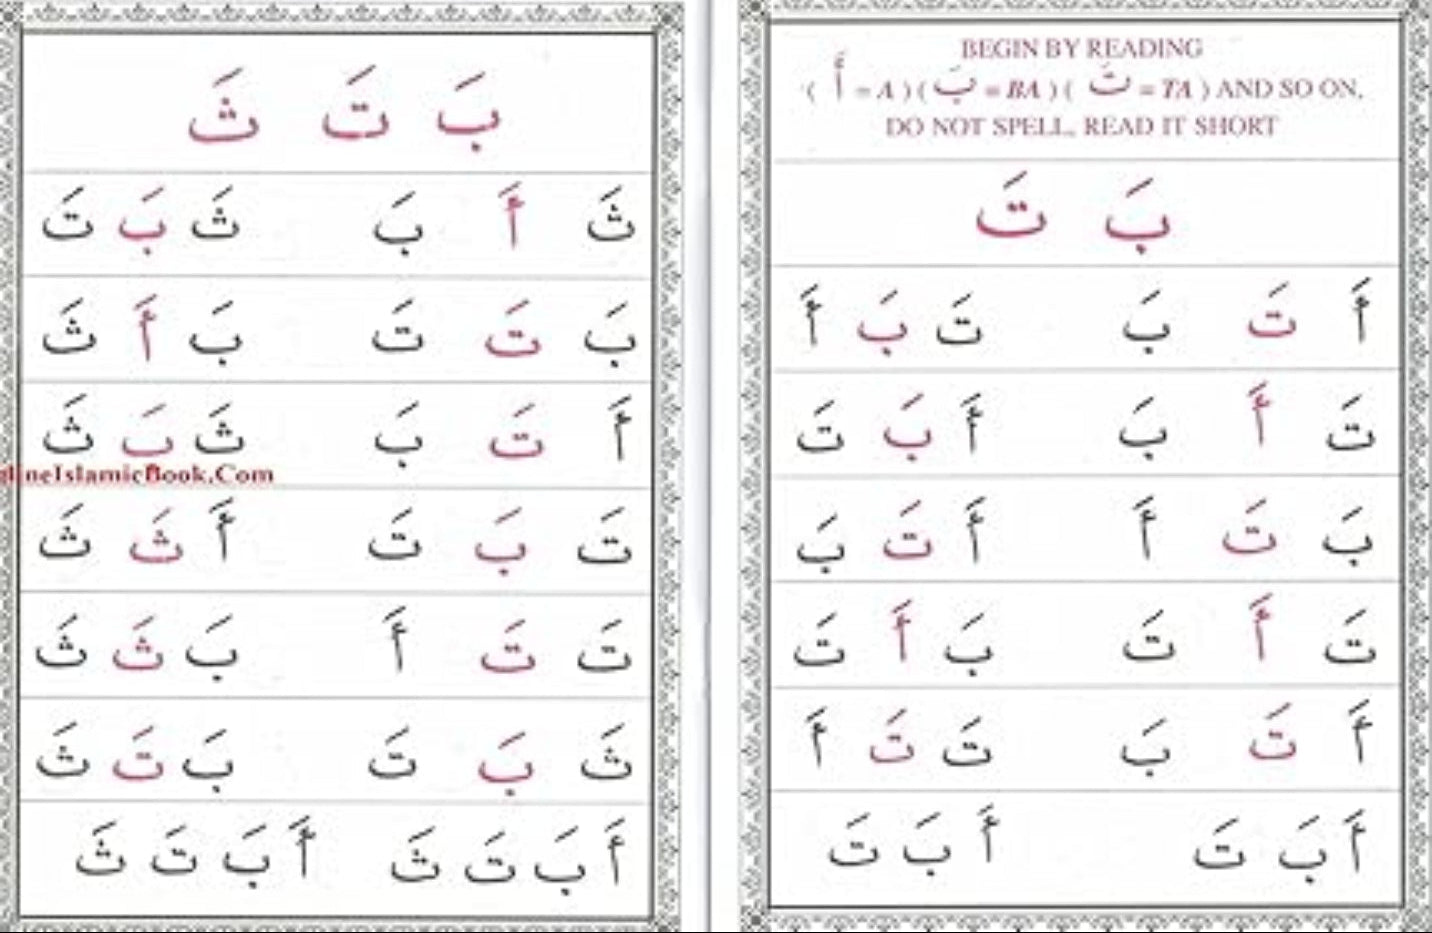 BEGIN BY READING
( أَ = A ) ( بَ = BA ) ( تَ = TA ) AND SO ON,
DO NOT SPELL, READ IT SHORT
بَ تَ
أَ تَ بَ تَ بَ أَ
تَ أَ بَ أَ بَ تَ
بَ تَ أَ أَ تَ بَ
تَ أَ تَ بَ أَ تَ
أَ تَ بَ تَ تَ أَ
أَ بَ تَ أَ بَ تَ
بَ تَ ثَ
ثَ أَ بَ ثَ بَ تَ
بَ تَ تَ بَ أَ ثَ
أَ تَ بَ ثَ بَ ثَ
neIslamicBook.Com
تَ بَ تَ أَ ثَ ثَ
تَ تَ أَ بَ ثَ ثَ
ثَ بَ تَ بَ تَ ثَ
أَ بَ تَ ثَ أَ بَ تَ ثَ